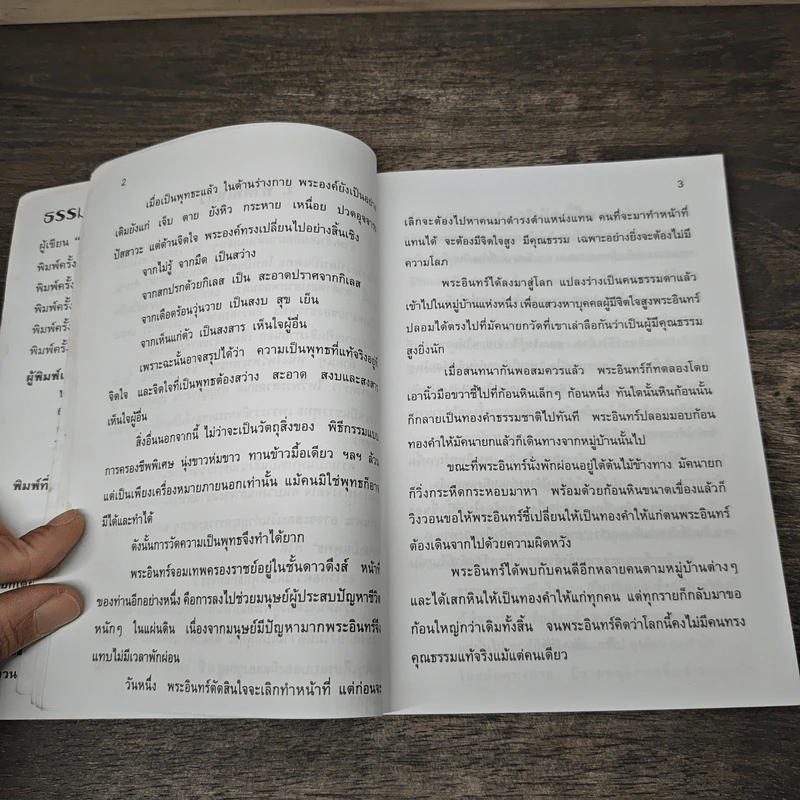 ธรรม
ผู้เขียน "
พิมพ์ครั้ง
พิมพ์ครั้ง
พิมพ์ครั้ง
พิมพ์ครั้ง
พิมพ์ครั้ง
ผู้พิมพ์
พิมพ์ที่
2
เมื่อเป็นพุทธะแล้ว ในด้านร่างกาย พระองค์ยังเป็นอย่าง
เดิมยังแก่ เจ็บ ตาย ยังหิว กระหาย เหนื่อย ปวดอุจจาระ
ปัสสาวะ แต่ด้านจิตใจ พระองค์ทรงเปลี่ยนไปอย่างสิ้นเชิง
จากไม่รู้ จากมืด เป็นสว่าง
จากสกปรกด้วยกิเลส เป็น สะอาดปราศจากกิเลส
จากเดือดร้อนวุ่นวาย เป็นสงบ สุข เย็น
จากเห็นแก่ตัว เป็นสงสาร เห็นใจผู้อื่น
เพราะฉะนั้นอาจสรุปได้ว่า ความเป็นพุทธที่แท้จริงอยู่ที่
จิตใจ และจิตใจที่เป็นพุทธต้องสว่าง สะอาด สงบและสงสาร
เห็นใจผู้อื่น
สิ่งอื่นนอกจากนี้ ไม่ว่าจะเป็นวัตถุสิ่งของ พิธีกรรมแบบ
การครองชีพพิเศษ นุ่งขาวห่มขาว ทานข้าวมื้อเดียว ฯลฯ ล้วน
แต่เป็นเพียงเครื่องหมายภายนอกเท่านั้น แม้คนมิใช่พุทธก็อาจ
มีได้และทำได้
ดังนั้นการวัดความเป็นพุทธจึงทำได้ยาก
พระอินทร์จอมเทพครองราชย์อยู่ในชั้นดาวดึงส์ หน้าที่
ของท่านอีกอย่างหนึ่ง คือการลงไปช่วยมนุษย์ผู้ประสบปัญหาชีวิต
หนักๆ ในแผ่นดิน เนื่องจากมนุษย์มีปัญหามากพระอินทร์จึง
แทบไม่มีเวลาพักผ่อน
วันหนึ่ง พระอินทร์ตัดสินใจจะเลิกทำหน้าที่ แต่ก่อนจะ
3
เลิกจะต้องไปหาคนมาดำรงตำแหน่งแทน คนที่จะมาทำหน้าที่
แทนได้ จะต้องมีจิตใจสูง มีคุณธรรม เฉพาะอย่างยิ่งจะต้องไม่มี
ความโลภ
พระอินทร์ได้ลงมาสู่โลก แปลงร่างเป็นคนธรรมดาแล้ว
เข้าไปในหมู่บ้านแห่งหนึ่ง เพื่อแสวงหาบุคคลผู้มีจิตใจสูงพระอินทร์
ปลอมได้ตรงไปที่มัคนายกวัดที่เขาเล่าลือกันว่าเป็นผู้มีคุณธรรม
สูงยิ่งนัก
เมื่อสนทนากันพอสมควรแล้ว พระอินทร์ก็ทดลองโดย
เอานิ้วมือขวาชี้ไปที่ก้อนหินเล็กๆ ก้อนหนึ่ง ทันใดนั้นหินก้อนนั้น
ก็กลายเป็นทองคำธรรมชาติไปทันที พระอินทร์ปลอมมอบก้อน
ทองคำให้มัคนายกแล้วก็เดินทางจากหมู่บ้านนั้นไป
ขณะที่พระอินทร์นั่งพักผ่อนอยู่ใต้ต้นไม้ข้างทาง มัคนายก
ก็วิ่งกระหืดกระหอบมาหา พร้อมด้วยก้อนหินขนาดเขื่องแล้วก็
วิงวอนขอให้พระอินทร์ชี้เปลี่ยนให้เป็นทองคำให้แก่ตนพระอินทร์
ต้องเดินจากไปด้วยความผิดหวัง
พระอินทร์ได้พบกับคนดีอีกหลายคนตามหมู่บ้านต่างๆ
และได้เสกหินให้เป็นทองคำให้แก่ทุกคน แต่ทุกรายก็กลับมาขอ
ก้อนใหญ่กว่าเดิมทั้งสิ้น จนพระอินทร์คิดว่าโลกนี้คงไม่มีคนทรง
คุณธรรมแท้จริงแม้แต่คนเดียว